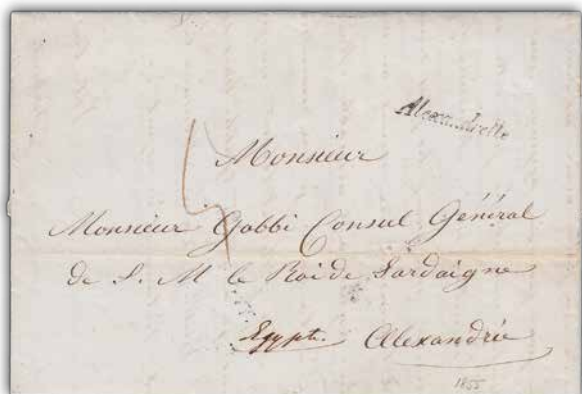 Alexandrette
Monsieur
Monsieur Gabbi Consul Général
de S. M le Roi de Sardaigne
Egypte. Alexandrie
1855